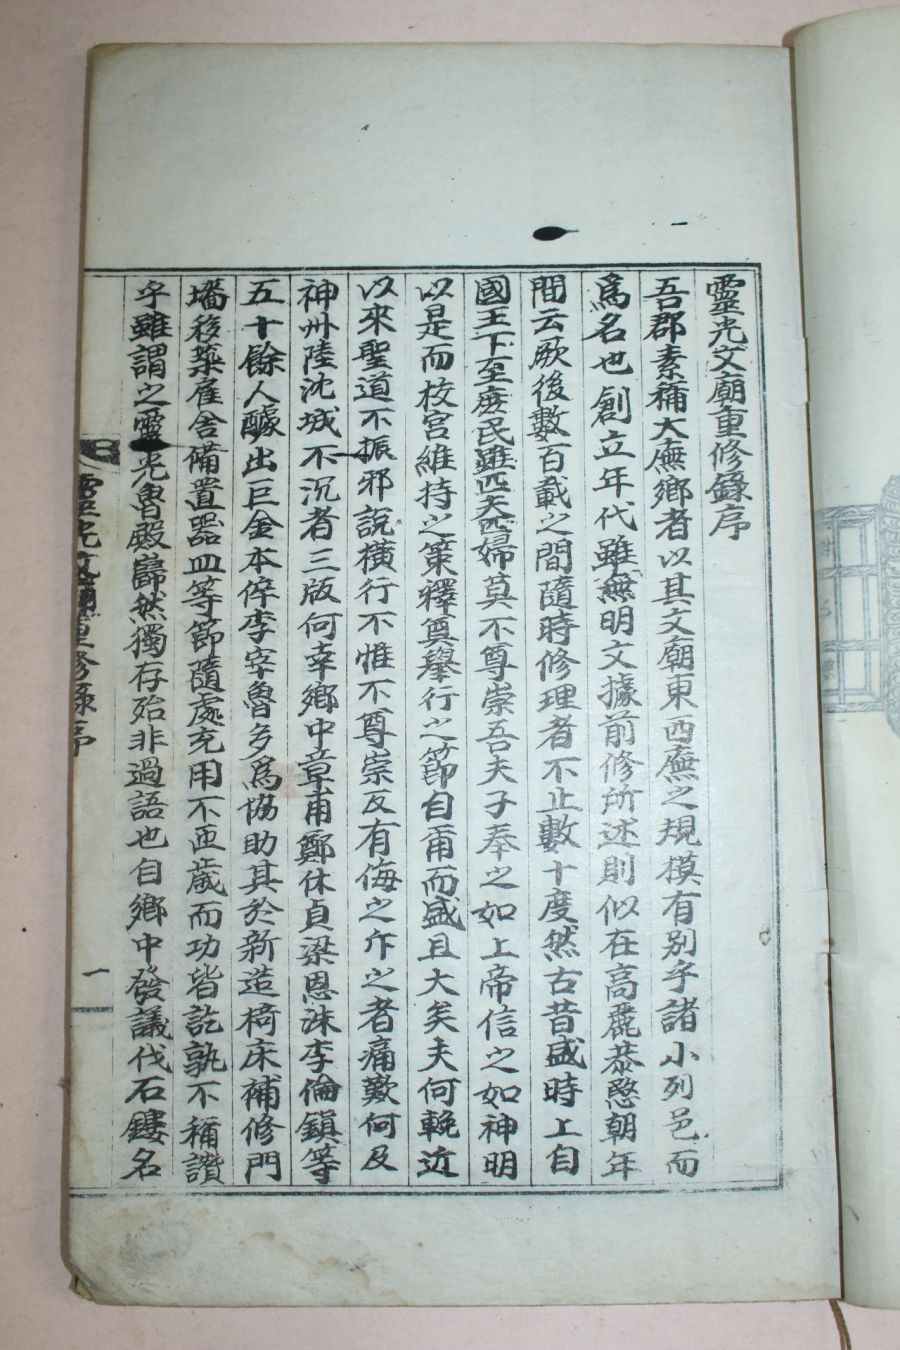 靈光文廟重修錄序
吾郡素稱大廡鄕者以其文廟東西廡之規模有別乎諸小列邑而
爲名也創立年代雖無明文據前修所述則似在高麗恭愍朝年
間云厥後數百載之間隨時修理者不止數十度然古昔盛時上自
國王下至庶民雖匹夫匹婦莫不尊崇吾夫子奉之如上帝信之如神明
以是而校宮維持之策釋奠擧行之節自甫而盛且大矣夫何輓近
以來聖道不振邪說橫行不惟不尊崇反有侮之斥之者痛歎何及
神州陸沈城不沉者三版何幸鄕中章甫鄭休貞梁恩洙李倫鎭等
五十餘人醵出巨金本倅李宰魯多爲協助其於新造椅床補修門
墻移築雇舍備置器皿等節隨處充用不匝歲而功皆訖孰不稱讚
乎雖謂之靈光魯殿巋然獨存殆非過語也自鄕中發議伐石鏤名
靈光文廟重修錄序
一